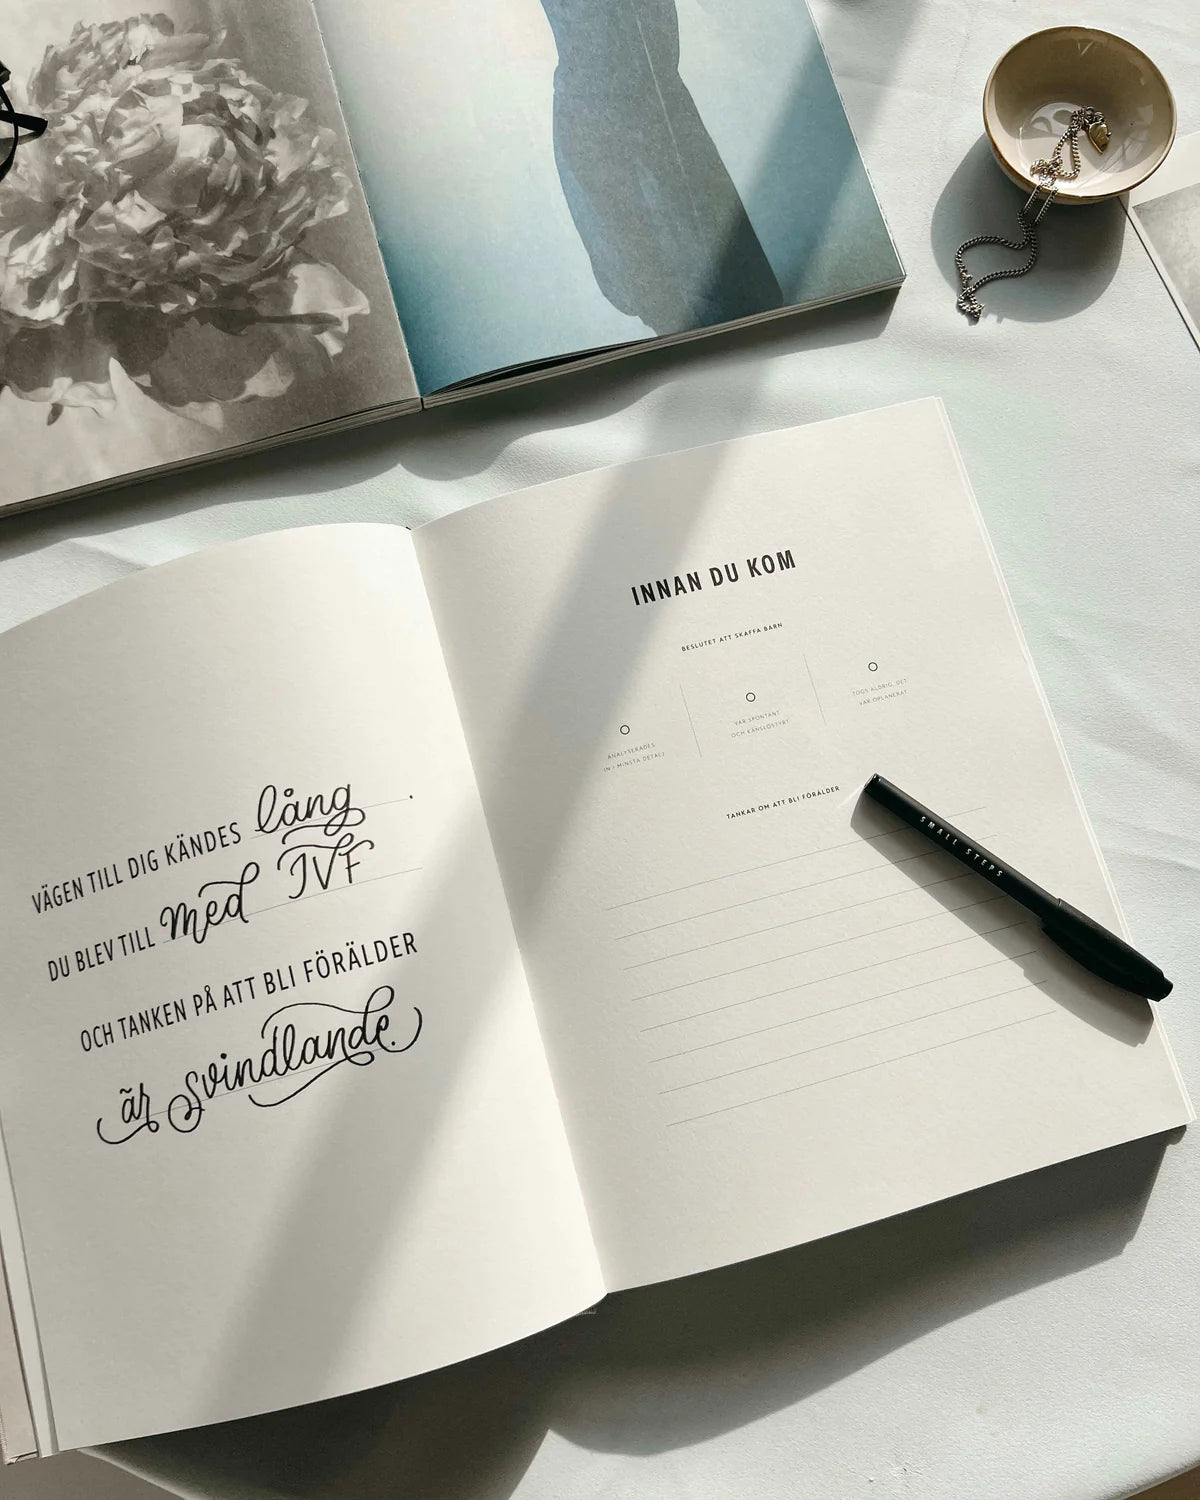 VÄGEN TILL DIG KÄNDES lång.
DU BLEV TILL med IVF
OCH TANKEN PÅ ATT BLI FÖRÄLDER
är svindlande.
INNAN DU KOM
BESLUTET ATT SKAFFA BARN
ANALYSERADES
IN I MINSTA DETALJ
VAR SPONTANT
OCH KÄNSLOSTYRT
TOGS ALDRIG, DET
VAR OPLANERAT
TANKAR OM ATT BLI FÖRÄLDER
SMALL STEPS